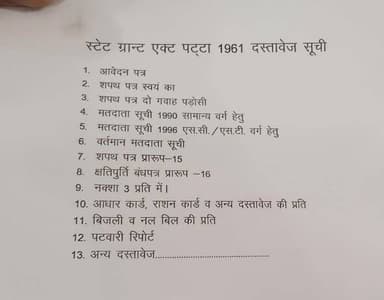 स्टेट ग्रान्ट एक्ट पट्टा 1961 दस्तावेज सूची
1. आवेदन पत्र
2. शपथ पत्र स्वयं का
3. शपथ पत्र दो गवाह पड़ोसी
4. मतदाता सूची 1990 सामान्य वर्ग हेतु
5. मतदाता सूची 1996 एस.सी./एस.टी. वर्ग हेतु
6. वर्तमान मतदाता सूची
7. शपथ पत्र प्रारूप–15
8. क्षतिपुर्ति बंधपत्र प्रारूप –16
9. नक्शा 3 प्रति में।
10. आधार कार्ड, राशन कार्ड व अन्य दस्तावेज की प्रति
11. बिजली व नल बिल की प्रति
12. पटवारी रिपोर्ट
13. अन्य दस्तावेज..........................................